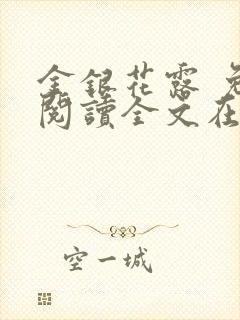 金銀花露 免
閱讀全文在
空一城